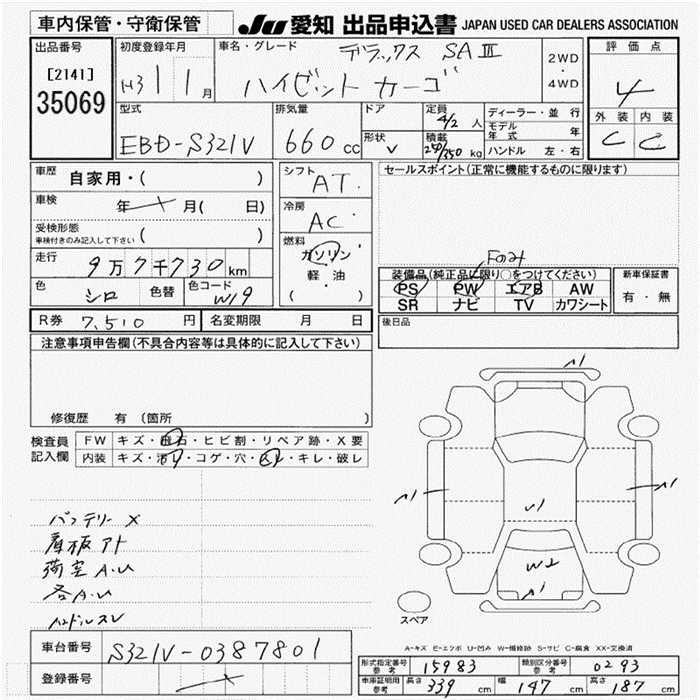 車内保管・守衛保管
JU 愛知 出品申込書 JAPAN USED CAR DEALERS ASSOCIATION
出品番号
[2141]
35069
初度登録年月
H31 1月
車名・グレード
デラックス SAⅢ
ハイゼット カーゴ
2WD
・
4WD
評価点
4
外装 内装
C C
型式
EBD-S321V
排気量
660cc
ドア
形状
V
定員
4/2 人
積載
250/350 kg
ディーラー・並行
モデル年式 年
ハンドル 左・右
車歴
自家用・( )
車検
年 月( 日)
受検形態
車検付きのみ記入して下さい ( )
走行
9万7千730km
色
シロ
色替
色コード
W19
シフト
AT
冷房
AC
燃料
ガソリン
軽・油
( ・ )
セールスポイント(正常に機能するものに限ります)
Fのみ
装備品(純正品に限り○をつけてください)
PS PW エアB AW
SR ナビ TV カワシート
新車保証書
有・無
後日品
R券 7,510 円 名変期限 月 日
注意事項申告欄(不具合内容等は具体的に記入して下さい)
修復歴 有 (箇所 )
検査員
記入欄
FW キズ・飛石・ヒビ割・リペア跡・X要
内装 キズ・汚レ・コゲ・穴・スレ・キレ・破レ
バッテリー X
看板アト
荷室A.U
各A.U
ハンドルスレ
A1
A1
A1
U1
W2
A1
スペア
A-キズ E-エクボ U-凹み W-補修跡 S-サビ C-腐食 XX-交換済
車台番号 S321V-0387801
登録番号
型式指定番号 参考 15983
類別区分番号 参考 0293
車庫証明用 参考 長さ 339 cm 幅 147 cm 高さ 187 cm